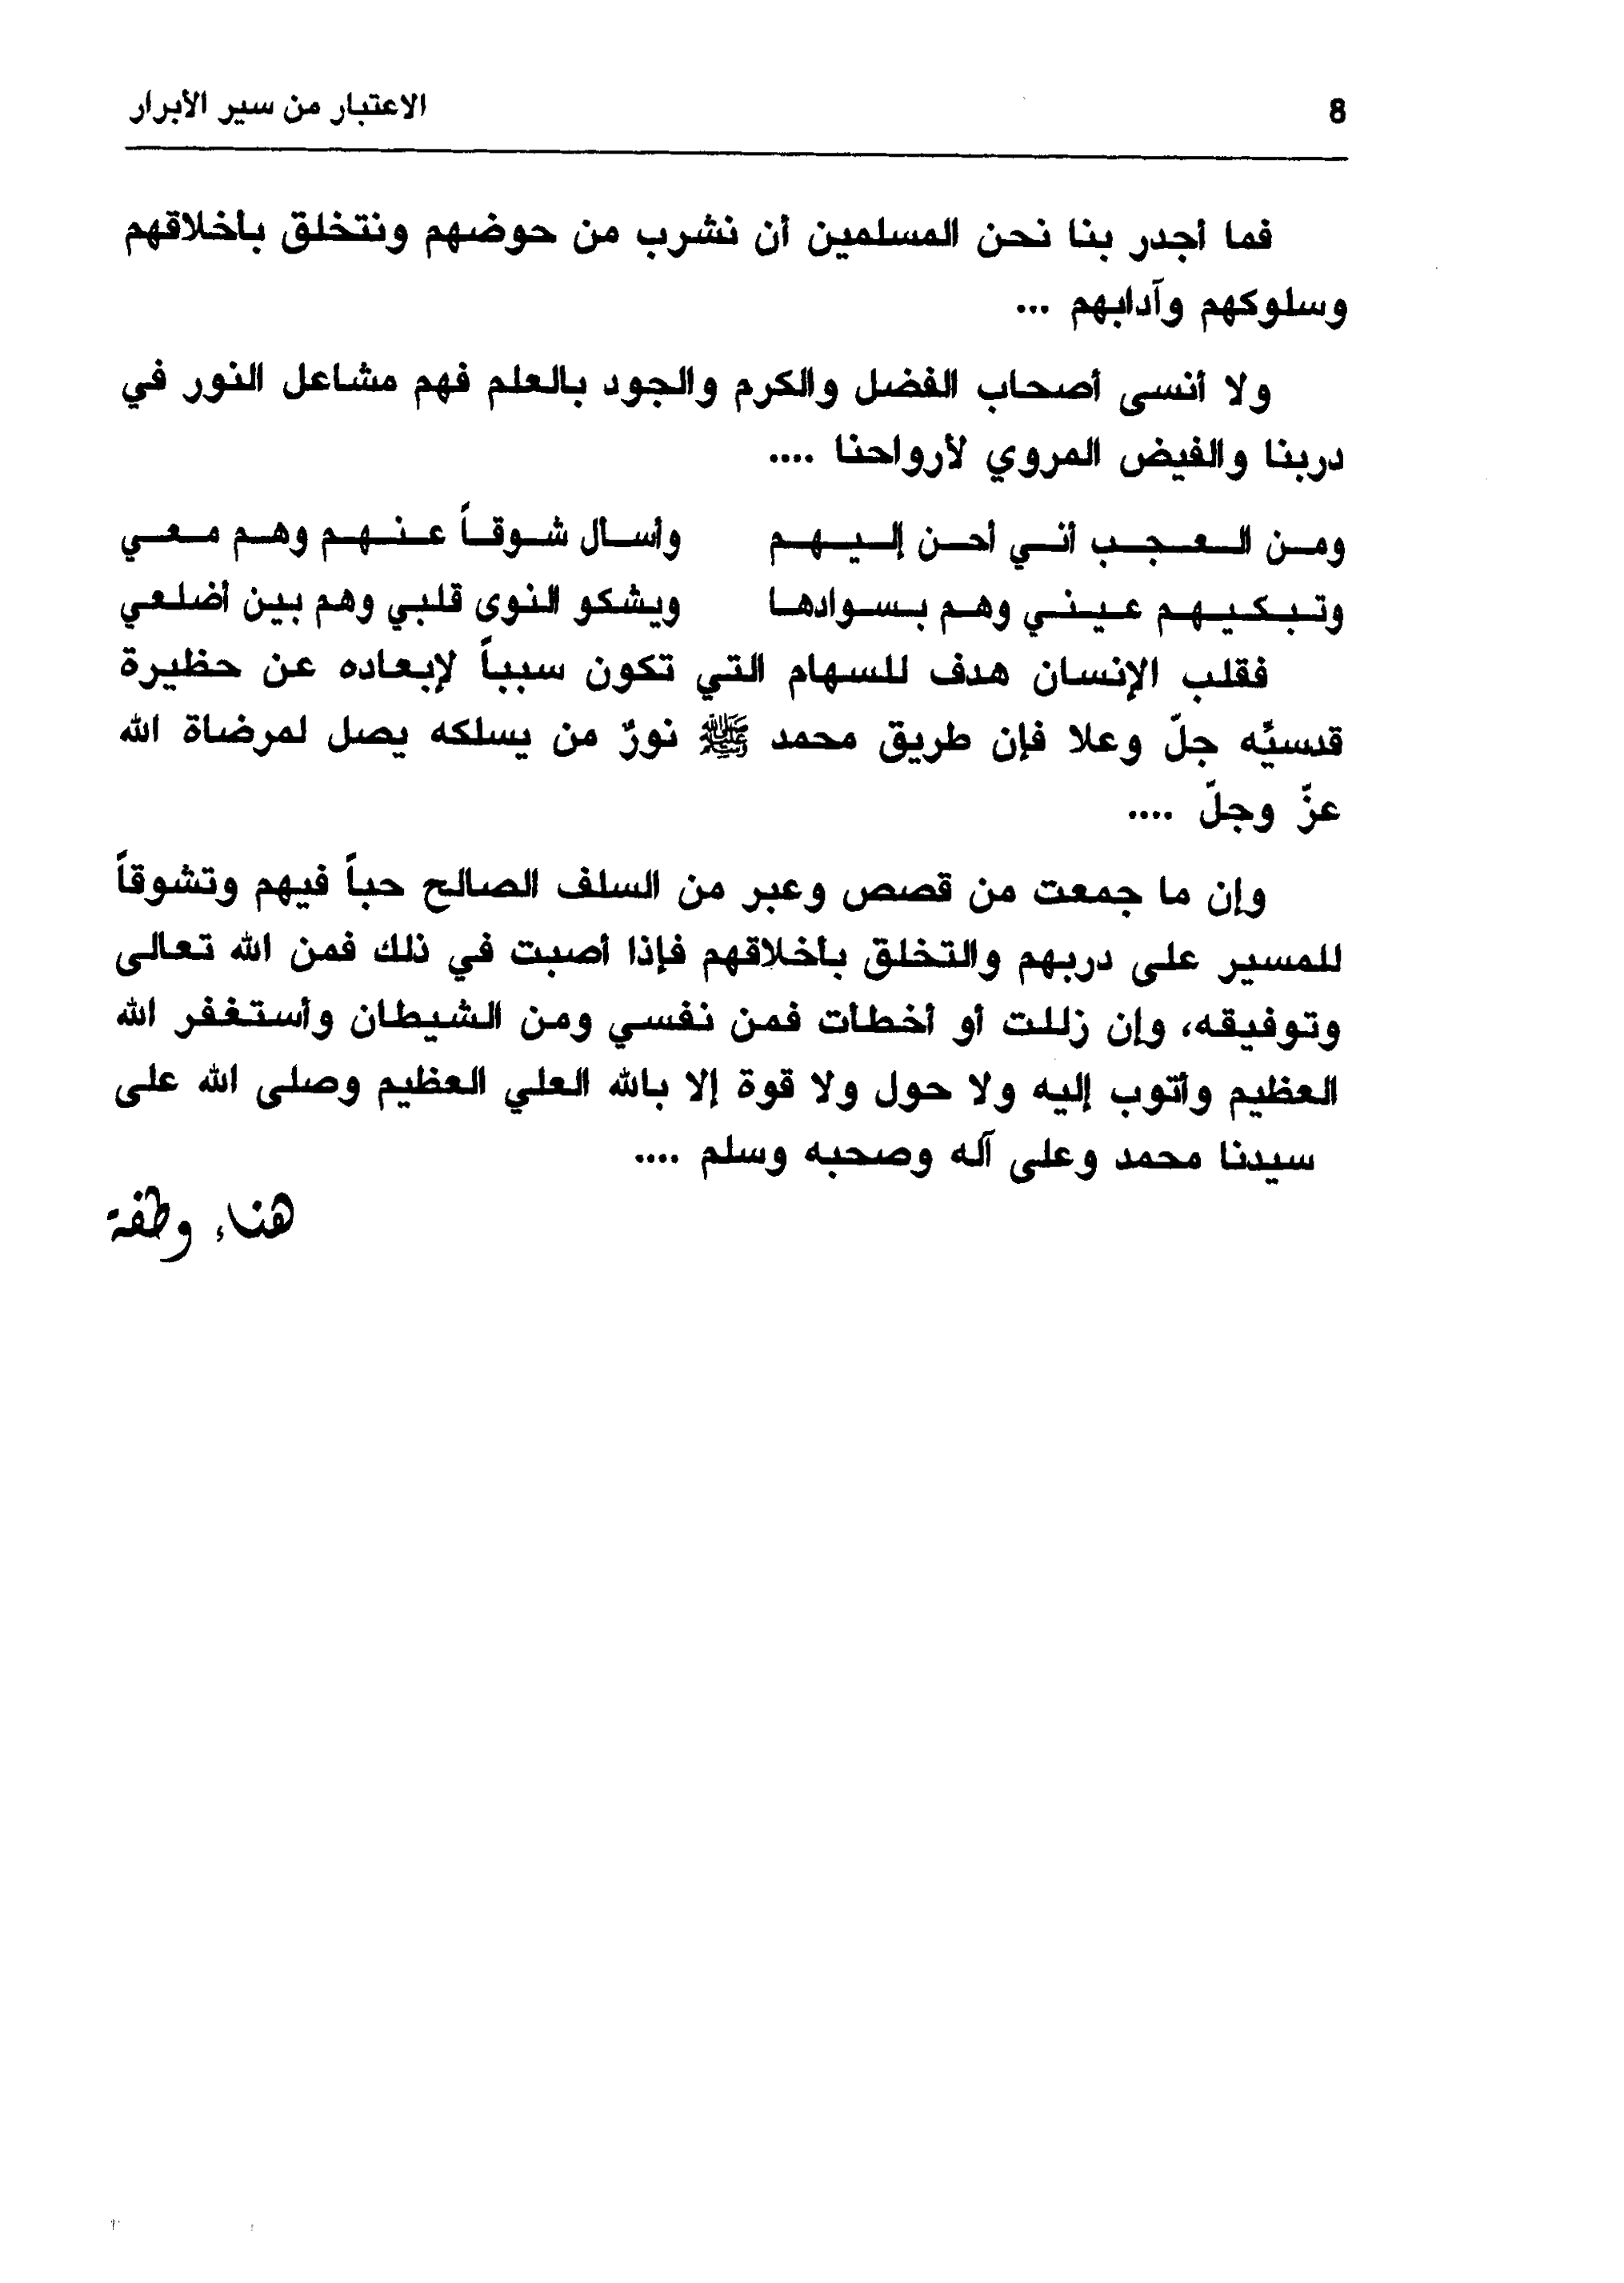 8 الاعتبار من سير الأبرار
فما أجدر بنا نحن المسلمين أن نشرب من حوضهم ونتخلق بأخلاقهم
وسلوكهم وآدابهم ...
ولا أنسى أصحاب الفضل والكرم والجود بالعلم فهم مشاعل النور في
دربنا والفيض المروي لأرواحنا ....
ومن العجب أني أحن إليهم وأسأل شوقاً عنهم وهم معي
وتبكيهم عيني وهم بسوادها ويشكو النوى قلبي وهم بين أضلعي
فقلب الإنسان هدف للسهام التي تكون سبباً لإبعاده عن حظيرة
قدسيِّه جلّ وعلا فإن طريق محمد ﷺ نورٌ من يسلكه يصل لمرضاة الله
عزّ وجلّ ....
وإن ما جمعت من قصص وعبر من السلف الصالح حباً فيهم وتشوقاً
للمسير على دربهم والتخلق بأخلاقهم فإذا أصبت في ذلك فمن الله تعالى
وتوفيقه، وإن زللت أو أخطأت فمن نفسي ومن الشيطان وأستغفر الله
العظيم وأتوب إليه ولا حول ولا قوة إلا بالله العلي العظيم وصلى الله على
سيدنا محمد وعلى آله وصحبه وسلم ....
هناء وطفة